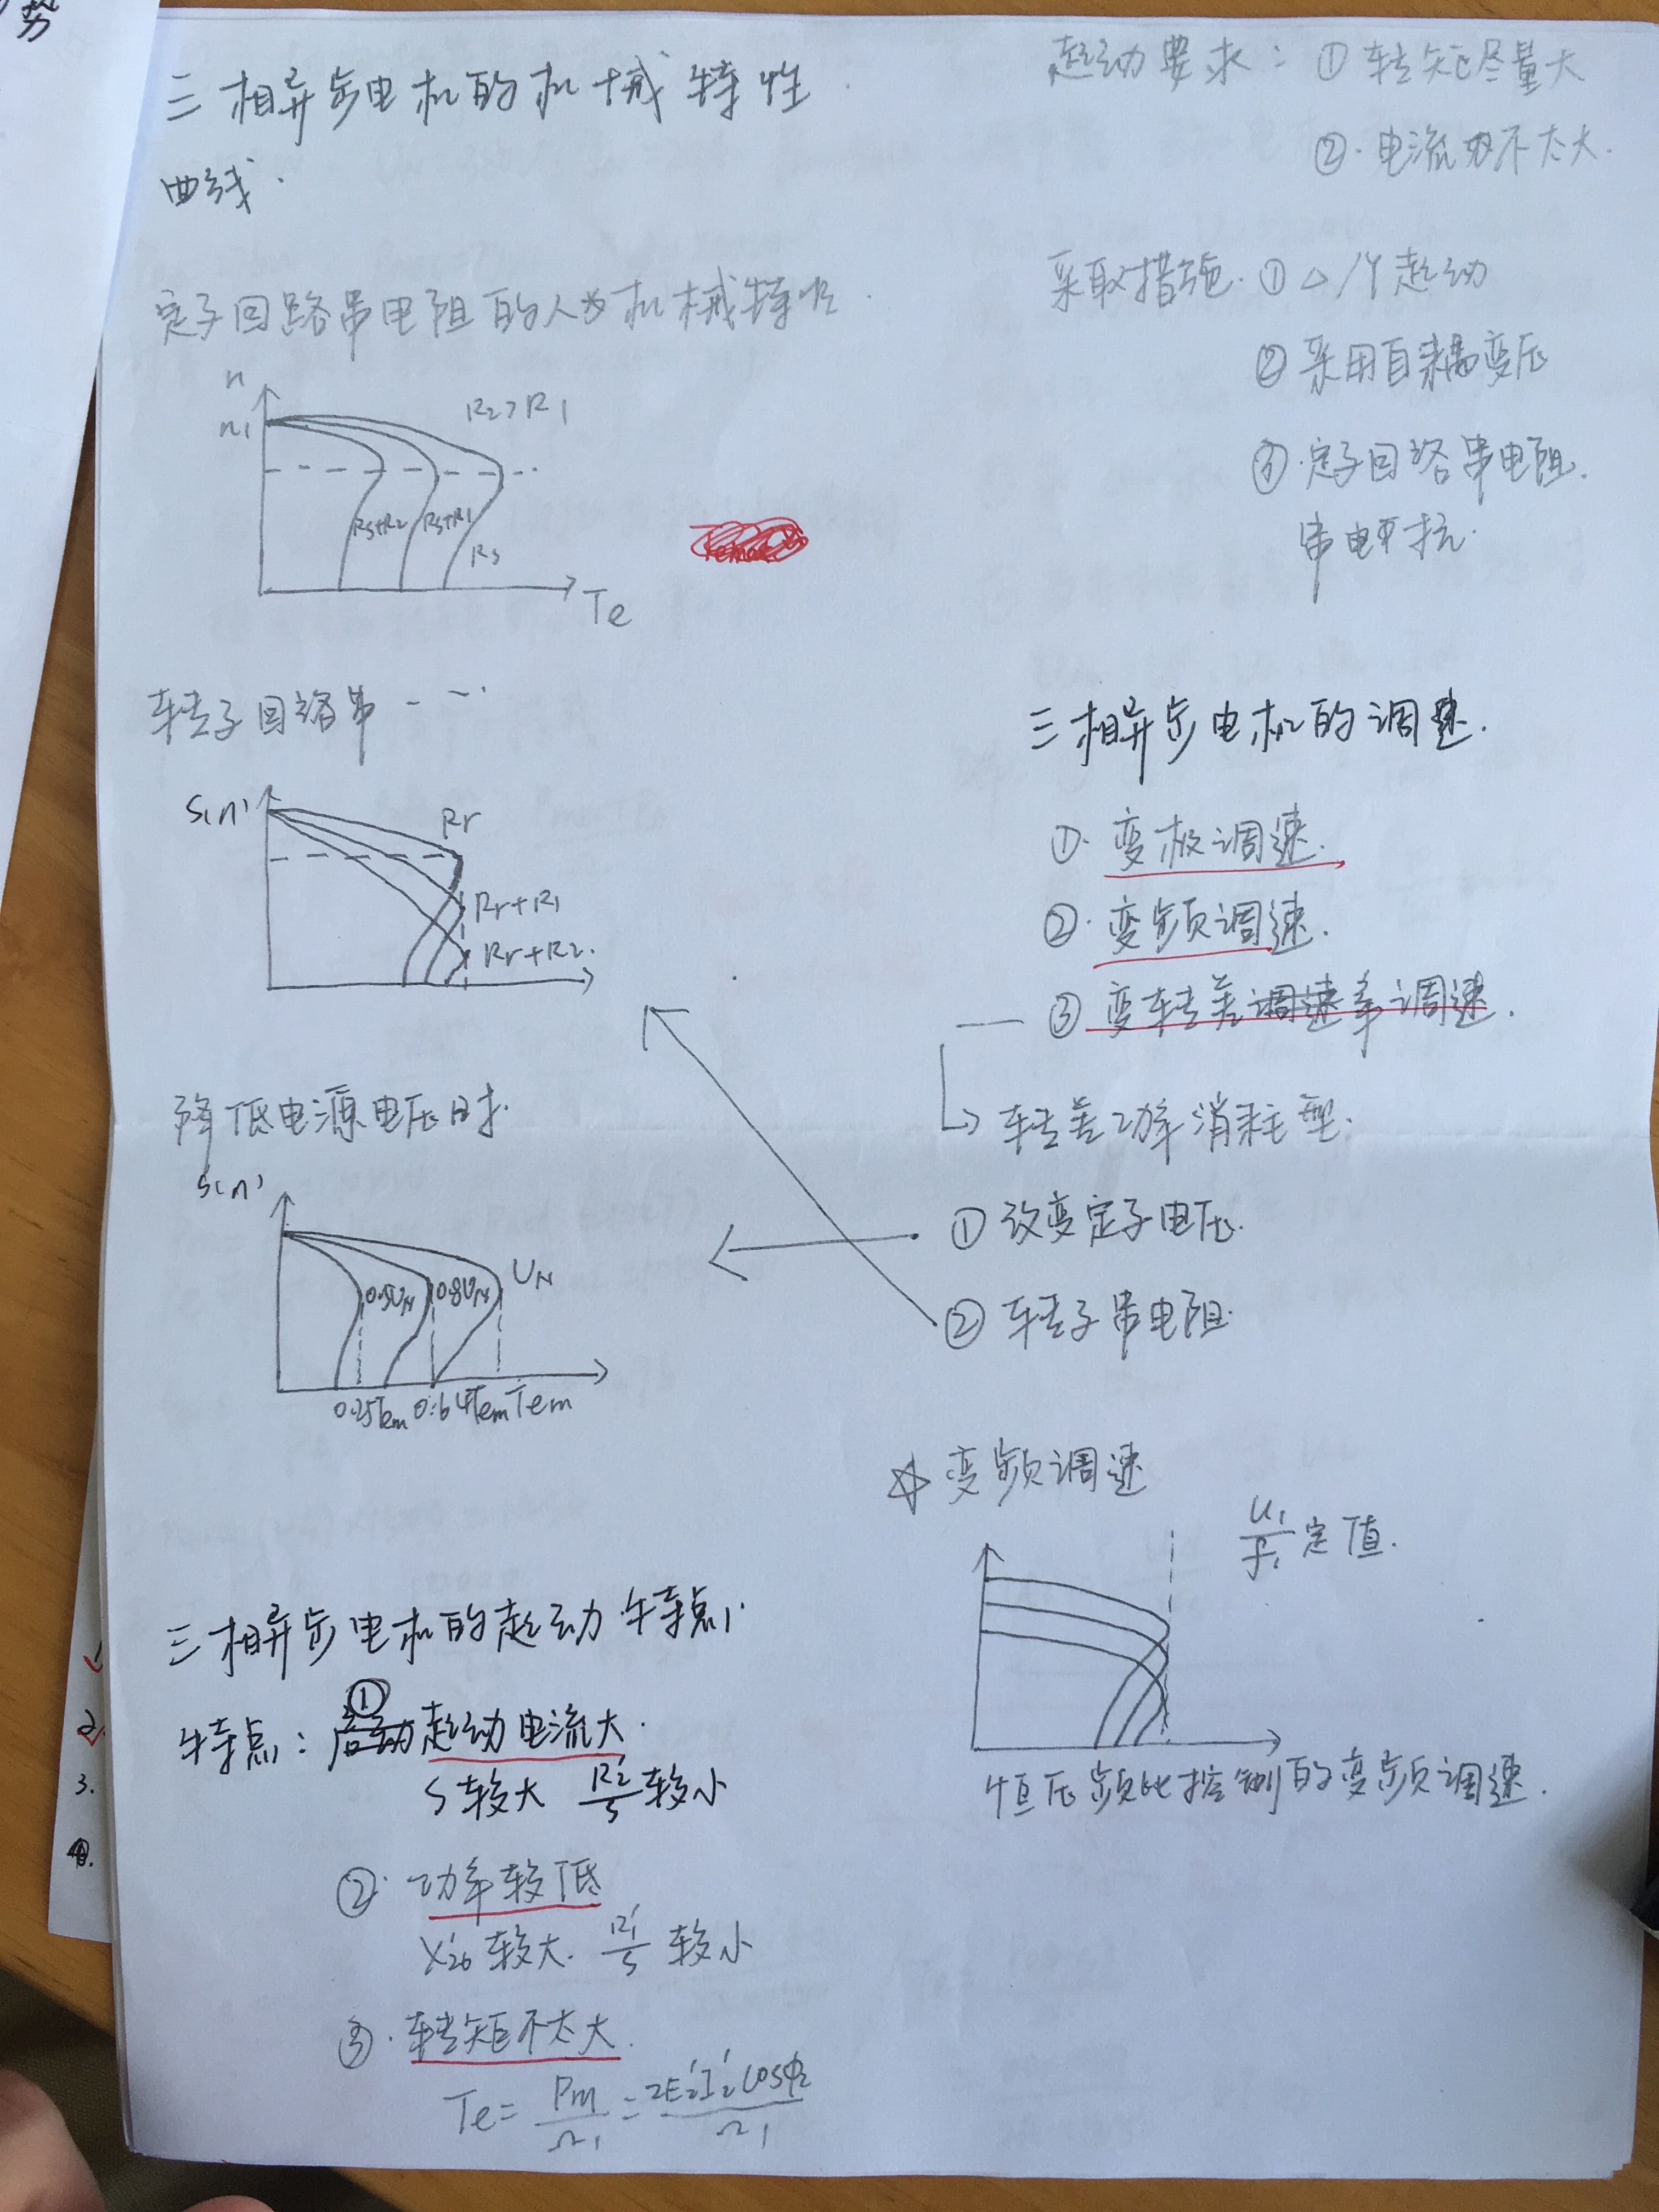 势
三相异步电机的机械特性
曲线.
定子回路串电阻的人为机械特性.
n
n1
R2>R1
Rs+R2
Rs+R1
Rs
Te
转子回路串
S(n)
Rr
Rr+R1
Rr+R2.
降低电源电压时.
S(n)
0.5UN
0.8UN
UN
0.25Tem 0.64Tem Tem
三相异步电机的起动特点.
特点: ① 启动起动电流大.
S较大 R2'/S 较小
② 功率较低
X2σ'较大. /S 较小
③. 转矩不太大.
Te= Pm/Ω1 = 2E2'I2'cosφ2/Ω1
起动要求: ① 转矩尽量大
②. 电流 不太大.
采取措施. ① △/Y起动
② 采用自耦变压
③. 定子回路串电阻.
串电抗.
三相异步电机的调速.
①. 变极调速.
②. 变频调速.
③ 变转差调速率调速.
转差功率消耗型.
① 改变定子电压.
② 转子串电阻.
☆ 变频调速
U1/f1 定值.
恒压频比控制的变频调速.
2.
3.